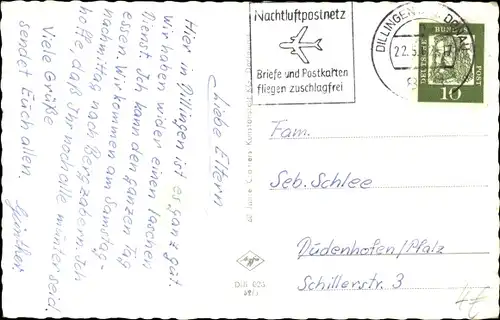 Liebe Eltern,
Hier in Dillingen ist es ganz gut.
Wir haben wider einen laschen
Dienst. Ich kann den ganzen Tag
essen. Wir kommen am Samstag-
nachmittag nach Bergzabern. Ich
hoffe, daß Ihr noch alle munter seid.
Viele Grüße
sendet Euch allen.
Günther.
Nachtluftpostnetz
Briefe und Postkarten
fliegen zuschlagfrei
DILLINGEN
22.5.
DEUTSCHE
BUNDES
POST
10
Fam.
Seb. Schlee
Dudenhofen/Pfalz
Schillerstr. 3
4€